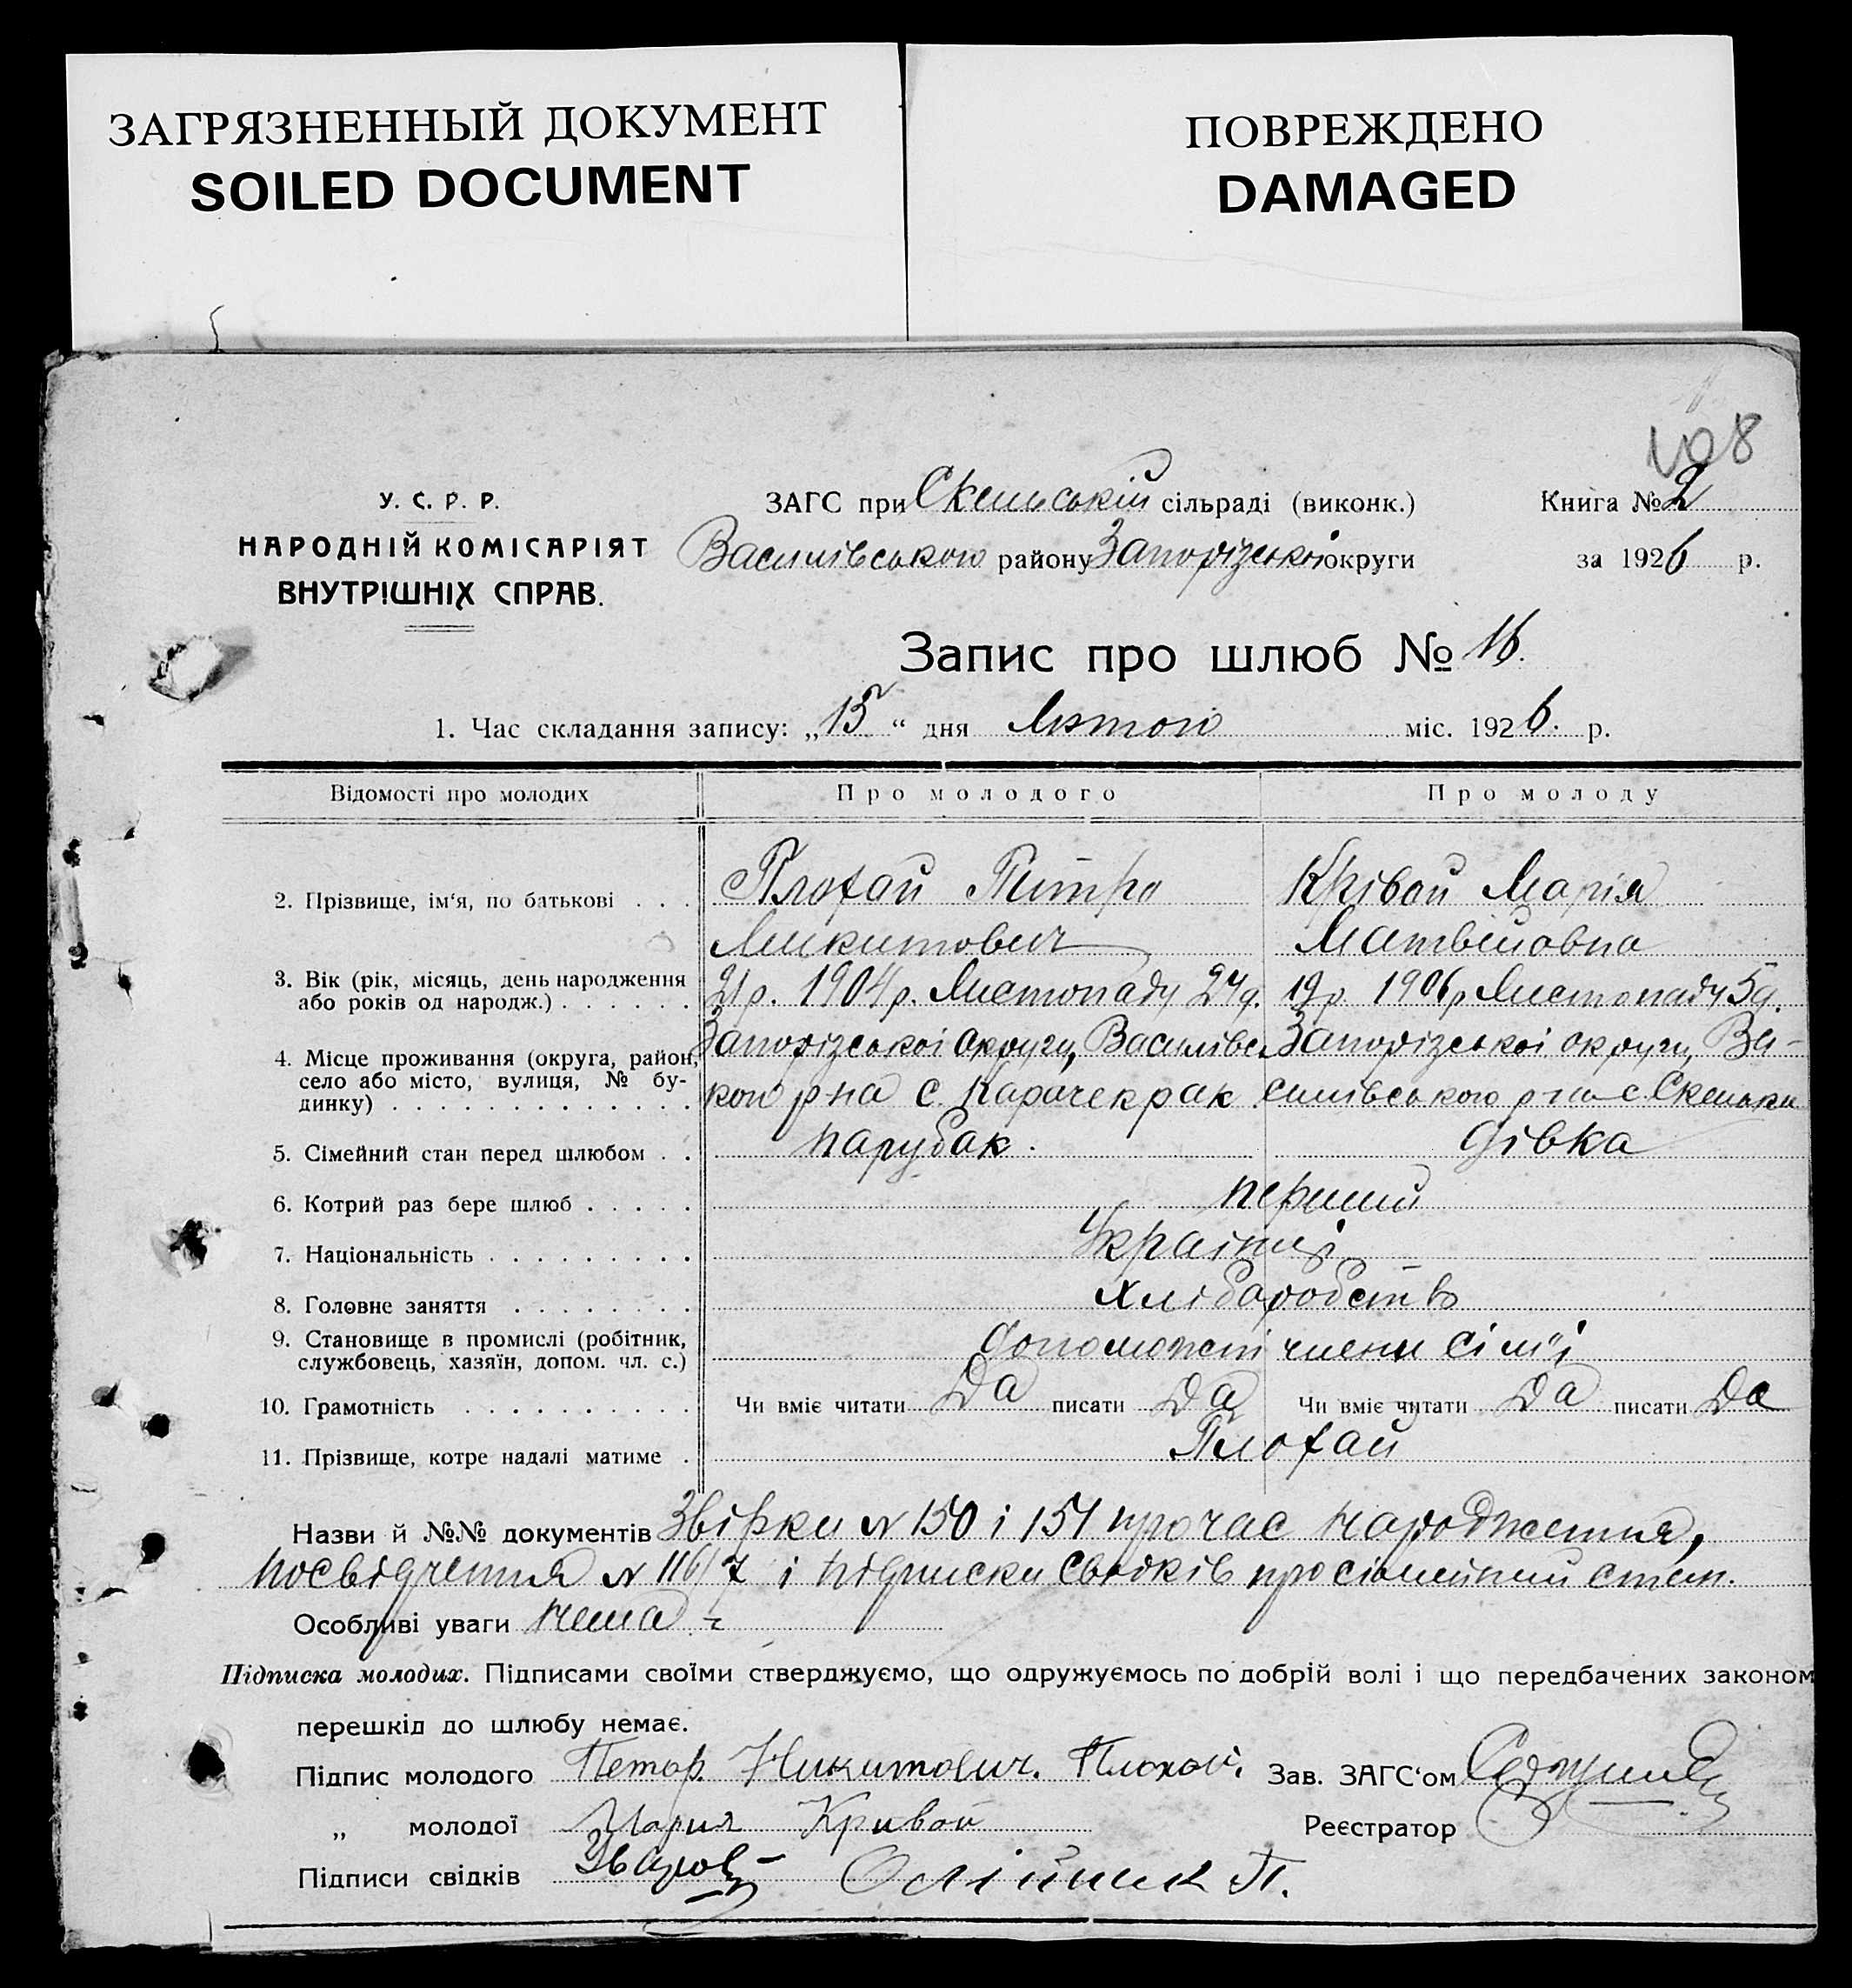 ЗАГРЯЗНЕННЫЙ ДОКУМЕНТ
SOILED DOCUMENT
ПОВРЕЖДЕНО
DAMAGED
108
У. С. Р. Р.
НАРОДНІЙ КОМІСАРІЯТ
ВНУТРІШНІХ СПРАВ.
ЗАГС при Скельській сільраді (виконк.)
Василівського району Запорізської округи
Книга № 2
за 1926 р.
Запис про шлюб № 16.
1. Час складання запису: „15“ дня Лютого міс. 1926. р.
Відомості про молодих Про молодого Про молоду
2. Прізвище, ім‘я, по батькові . . . Плохай Питро Крівой Марія
Микитович Матвійовна
3. Вік (рік, місяць, день народження або років од народж.) . . . . . . 21 р. 1904 р. Листопаду 24 д. 19 р. 1906 р. Листопаду 5 д.
4. Місце проживання (округа, район, село або місто, вулиця, № будинку) . . . . . . . . . . . . .
Запорізської округи, Василівсь Запорізської округи, Ва-
кого р на с. Карачекрак силівського р на с. Скельки
5. Сімейний стан перед шлюбом . . парубак. дівка
6. Котрий раз бере шлюб . . . . . перший
7. Національність . . . . . . . . . Українці
8. Головне заняття . . . . . . . . хліборобство
9. Становище в промислі (робітник, службовець, хазяїн, допом. чл. с.) допоможні члени сім'ї
10. Грамотність . . . . . . . . . . Чи вміє читати Да писати Да Чи вміє читати Да писати Да
11. Прізвище, котре надалі матиме . Плохай
Назви й №№ документів Звірки № 150 і 151 про час народження,
посвідчення № 116/7 і підписки свідків про сімейний стан.
Особливі уваги нема
Підписка молодих. Підписами своїми стверджуємо, що одружуємось по добрій волі і що передбачених законом
перешкід до шлюбу немає.
Підпис молодого Петор. Никитович. Плохой. Зав. ЗАГС‘ом
„ молодої Мария Кривой Реєстратор
Підписи свідків Олійник П.